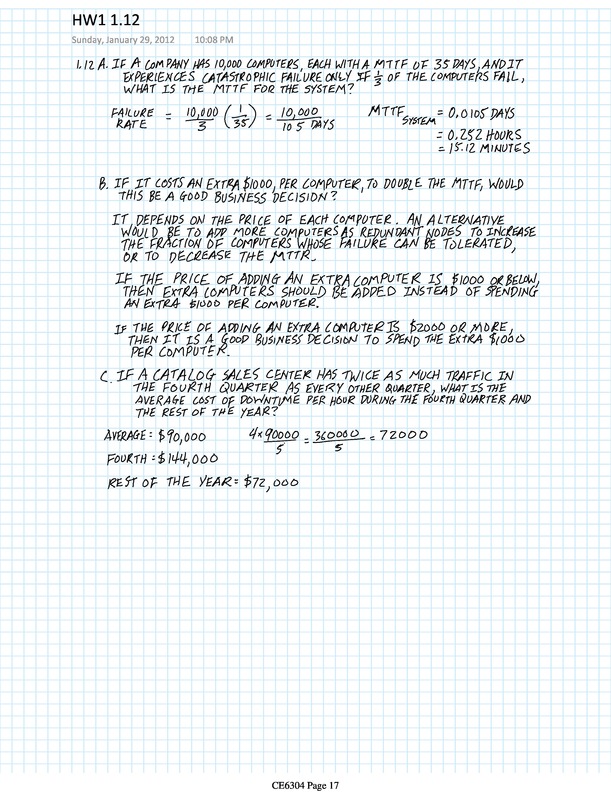 HW1 1.12
Sunday, January 29, 2012 10:08 PM
1.12 A. IF A COMPANY HAS 10,000 COMPUTERS, EACH WITH A MTTF OF 35 DAYS, AND IT
EXPERIENCES CATASTROPHIC FAILURE ONLY IF 1/3 OF THE COMPUTERS FAIL,
WHAT IS THE MTTF FOR THE SYSTEM?
FAILURE RATE = 10,000/3 (1/35) = 10,000/105 DAYS MTTF SYSTEM = 0.0105 DAYS
= 0.252 HOURS
= 15.12 MINUTES
B. IF IT COSTS AN EXTRA $1000, PER COMPUTER, TO DOUBLE THE MTTF, WOULD
THIS BE A GOOD BUSINESS DECISION?
IT DEPENDS ON THE PRICE OF EACH COMPUTER. AN ALTERNATIVE
WOULD BE TO ADD MORE COMPUTERS AS REDUNDANT NODES TO INCREASE
THE FRACTION OF COMPUTERS WHOSE FAILURE CAN BE TOLERATED,
OR TO DECREASE THE MTTR.
IF THE PRICE OF ADDING AN EXTRA COMPUTER IS $1000 OR BELOW,
THEN EXTRA COMPUTERS SHOULD BE ADDED INSTEAD OF SPENDING
AN EXTRA $1000 PER COMPUTER.
IF THE PRICE OF ADDING AN EXTRA COMPUTER IS $2000 OR MORE,
THEN IT IS A GOOD BUSINESS DECISION TO SPEND THE EXTRA $1000
PER COMPUTER.
C. IF A CATALOG SALES CENTER HAS TWICE AS MUCH TRAFFIC IN
THE FOURTH QUARTER AS EVERY OTHER QUARTER, WHAT IS THE
AVERAGE COST OF DOWNTIME PER HOUR DURING THE FOURTH QUARTER AND
THE REST OF THE YEAR?
AVERAGE: $90,000 4×90000/5 = 360000/5 = 72000
FOURTH = $144,000
REST OF THE YEAR = $72,000
CE6304 Page 17